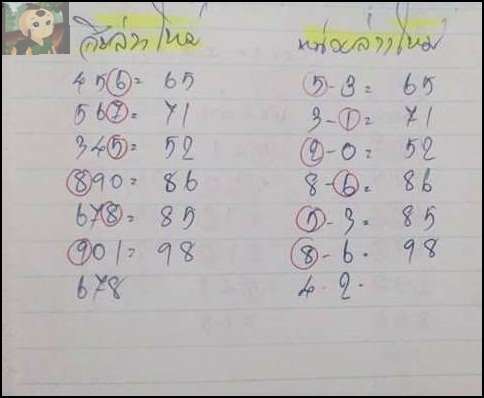 สิบล่าวใหม่ หน่วยล่าวใหม่
456= 65 5-3= 65
567= 71 3-1= 71
345= 52 2-0= 52
890= 86 8-6= 86
678= 85 5-3= 85
901= 98 8-6. 98
678 4.2.